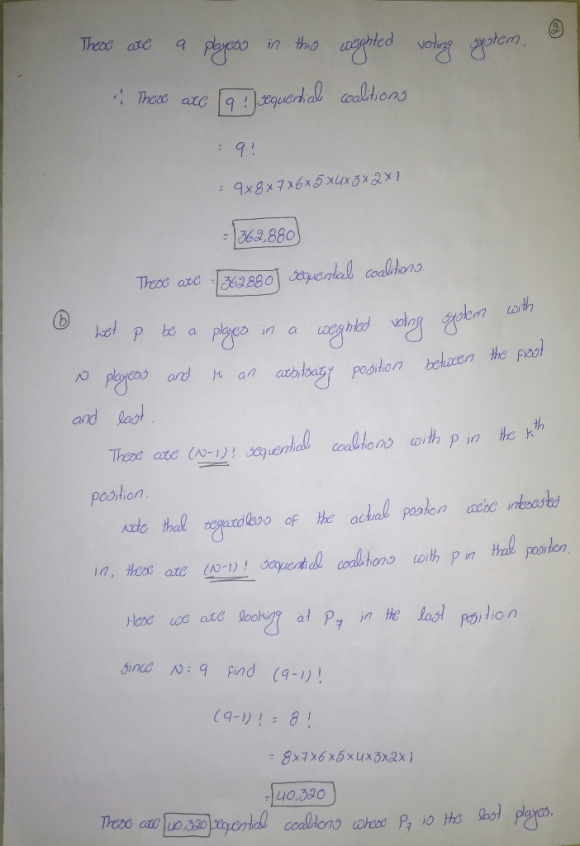 ②
There are 9 players in this weighted voting system.
∴ There are 9! sequential coalitions
= 9!
= 9×8×7×6×5×4×3×2×1
= 362,880
There are = 362880 sequential coalitions
ⓑ Let P be a player in a weighted voting system with
N players and K an arbitrary position between the first
and last.
There are (N-1)! sequential coalitions with P in the Kth
position.
Note that regardless of the actual position we're interested
in, there are (N-1)! sequential coalitions with P in that position.
Here we are looking at P7 in the last position
since N=9 Find (9-1)!
(9-1)! = 8!
= 8×7×6×5×4×3×2×1
= 40,320
There are 40,320 sequential coalitions where P7 is the last player.